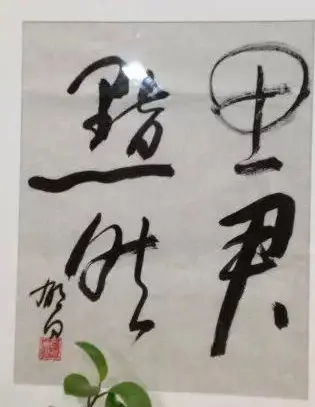 思君
黯然